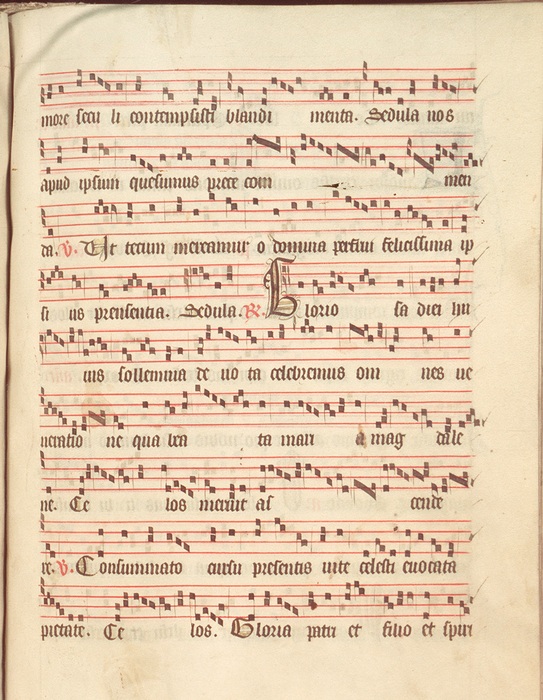 more secu li contempsisti blandi menta. Sedula nos
apud ipsum quesumus prece com men
da. V. Ut tecum mereamur o domina perfrui felicissima ip
si us presentia. Sedula. R. Glorio sa diei hu
ius sollemnia de uo ta celebremus om nes ue
neratio ne qua bea ta mari a mag dale
ne. Ce los meruit as cende
re. V. Consummato cursu presentis uite celesti euocata
pietate. Ce los. Gloria patri et filio et spiri